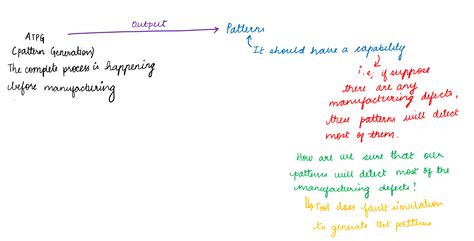 Output
ATPG
(pattern Generation)
The complete process is happening
before manufacturing
Patterns
It should have a capability
i.e, if suppose
there are any
manufacturing defects,
these patterns will detect
most of them.
How are we sure that our
patterns will detect most of the
manufacturing defects!
Tool does fault simulation
to generate test patterns